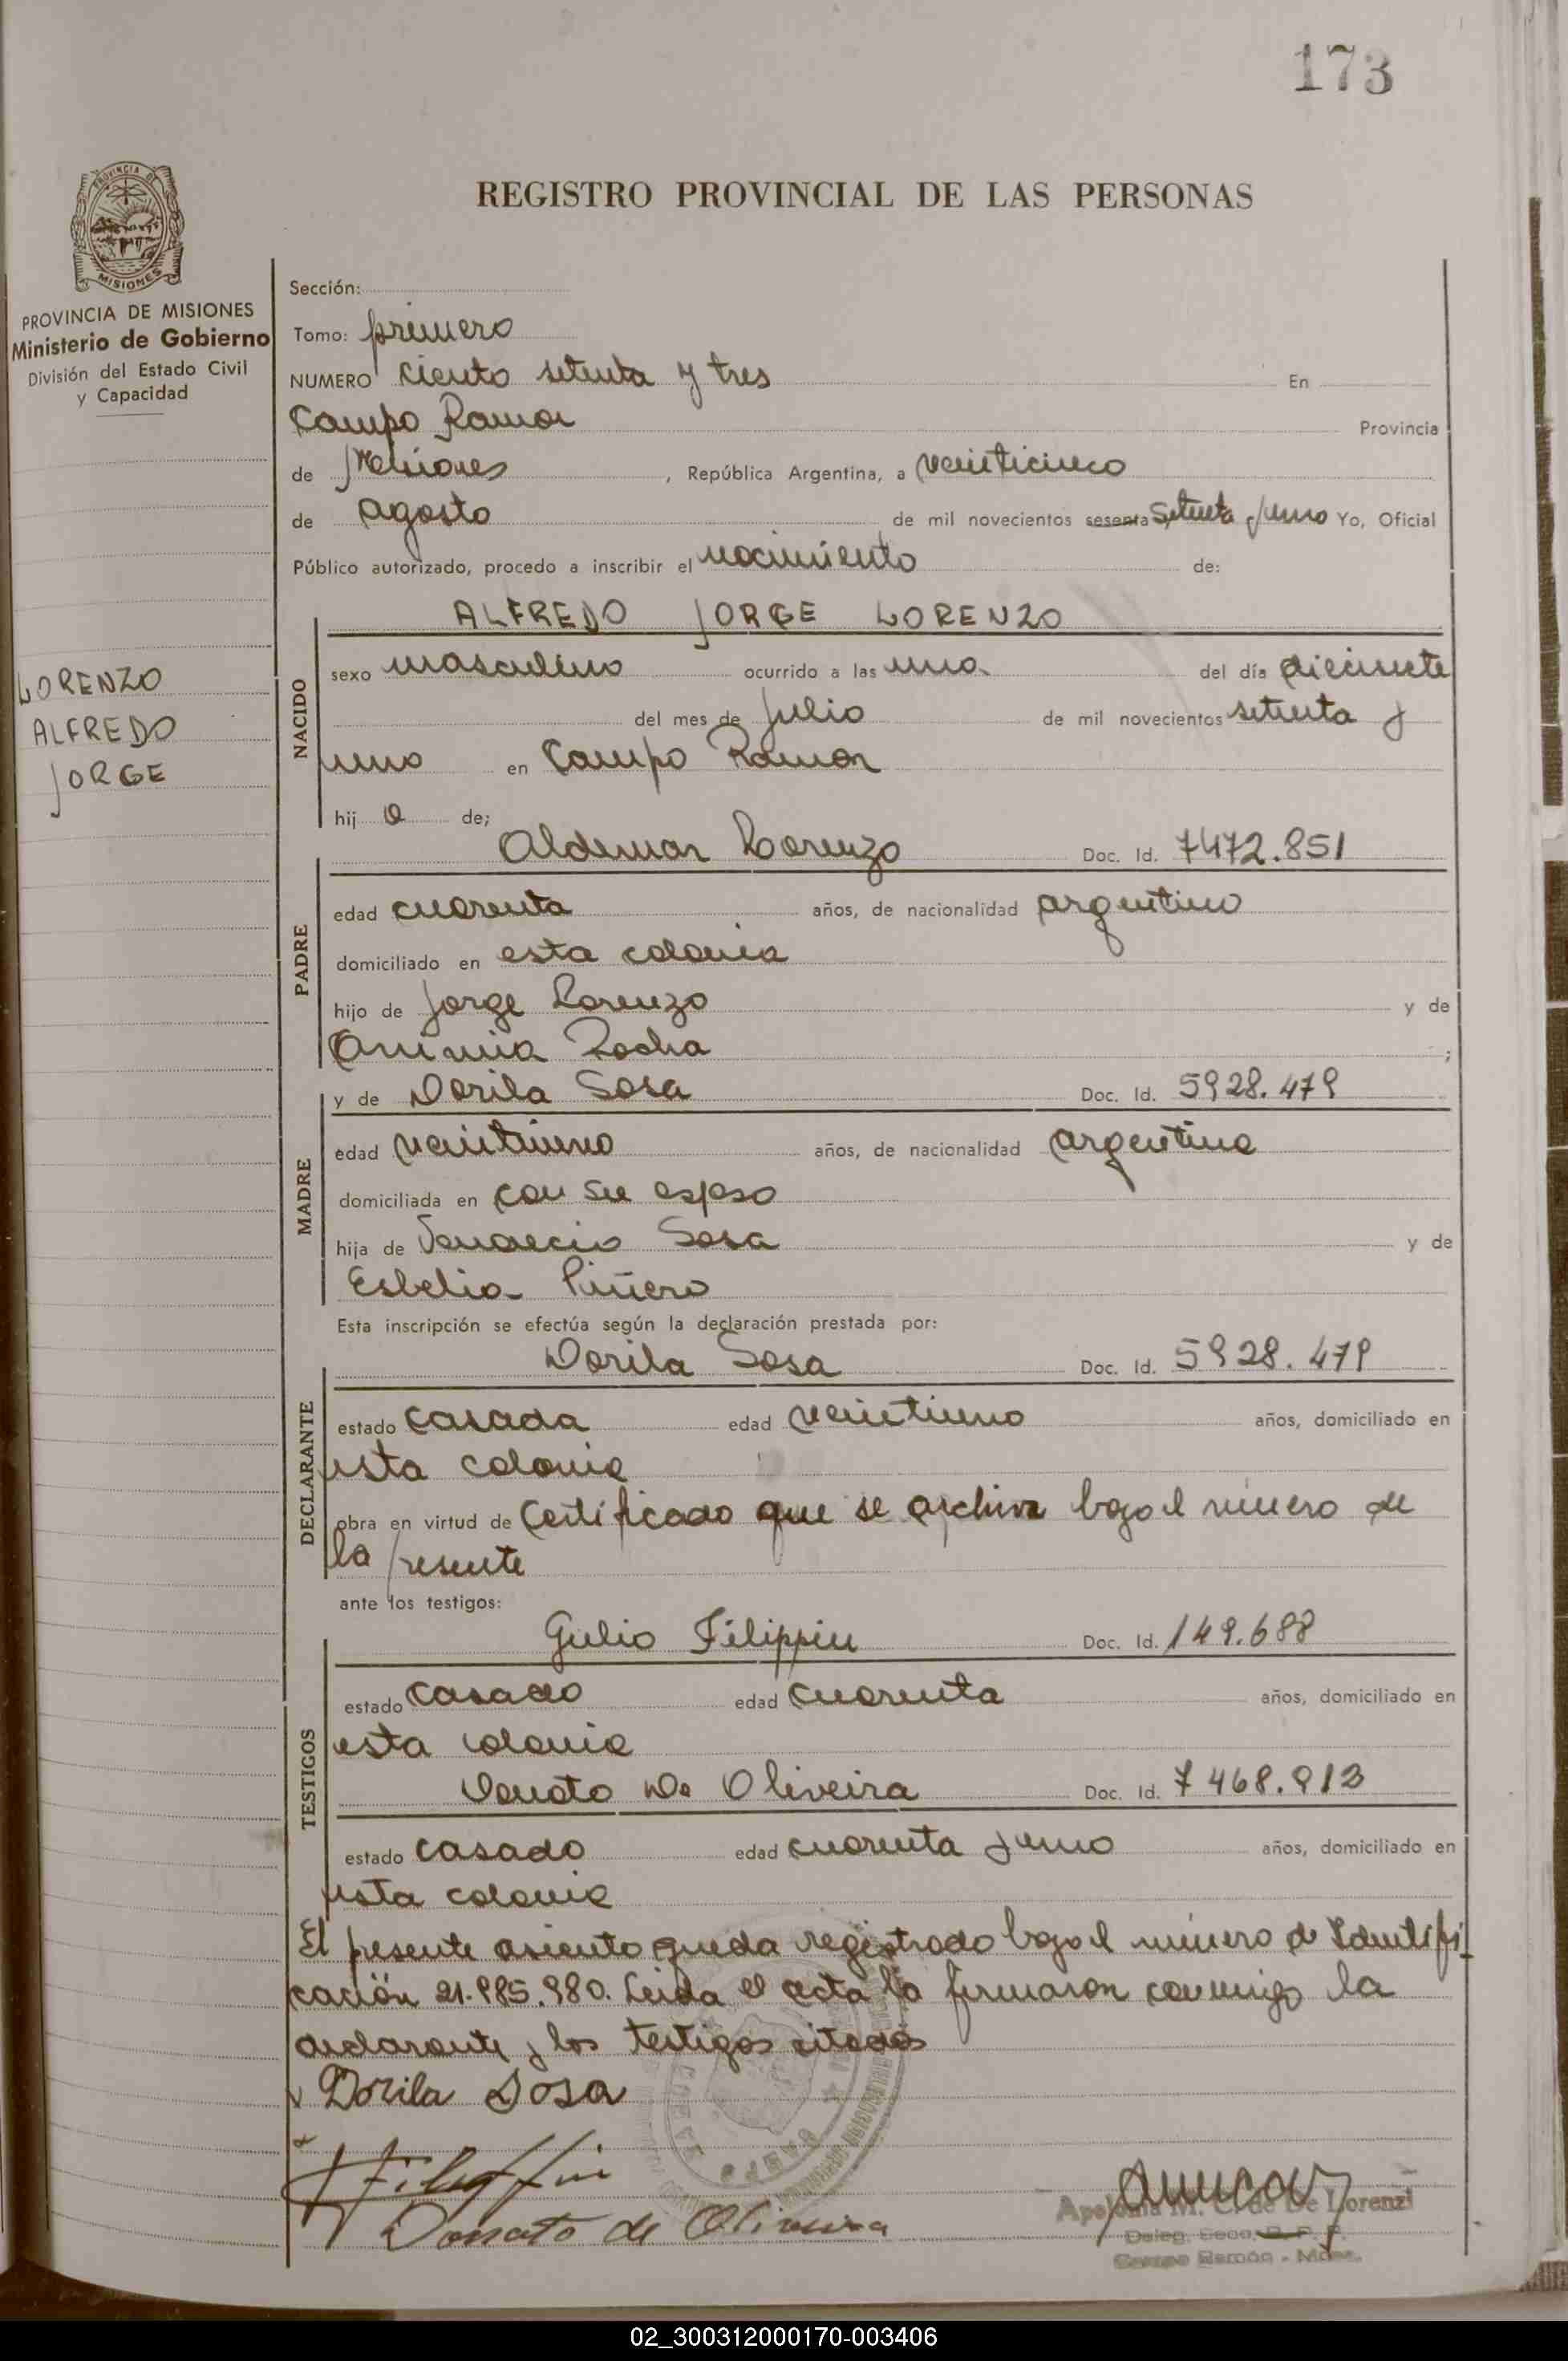 173
REGISTRO PROVINCIAL DE LAS PERSONAS
PROVINCIA DE
MISIONES
PROVINCIA DE MISIONES
Ministerio de Gobierno
División del Estado Civil
y Capacidad
LORENZO
ALFREDO
JORGE
Sección:
Tomo: primero
NUMERO ciento setenta y tres En
Campo Ramon Provincia
de Misiones, República Argentina, a veinticinco
de agosto de mil novecientos sesenta setenta y uno Yo, Oficial
Público autorizado, procedo a inscribir el nacimiento de:
ALFREDO JORGE LORENZO
NACIDO
sexo masculino ocurrido a las una del día diecisiete
del mes de Julio de mil novecientos setenta y
uno en Campo Ramon
hij o de;
Aldemar Lorenzo Doc. Id. 7472.851
PADRE
edad cuarenta años, de nacionalidad argentino
domiciliado en esta colonia
hijo de Jorge Lorenzo y de
Rocha ;
y de Dorila Sosa Doc. Id. 5928.479
MADRE
edad veintiuno años, de nacionalidad argentina
domiciliada en con su esposo
hija de Sosa y de
Esbelia Piñero
Esta inscripción se efectúa según la declaración prestada por:
Dorila Sosa Doc. Id. 5928.479
DECLARANTE
estado casada edad veintiuno años, domiciliado en
esta colonia
obra en virtud de Certificado que se archiva bajo el número de
la presente
ante los testigos:
Gulio Filippin Doc. Id. 149.688
TESTIGOS
estado casado edad cuarenta años, domiciliado en
esta colonia
Donato De Oliveira Doc. Id. 7468.913
estado casado edad cuarenta y uno años, domiciliado en
esta colonia
El presente asiento queda registrado bajo el número de Identifi
cación 21.985.980. Leida el acta la firmaron conmigo la
declarante y los testigos citados
Dorila Sosa
Filippin
Donato de Oliveira
Apolonia M. C. de De Lorenzi
Deleg. Secc. R. P. P.
Campo Ramón - Mnes.
02_300312000170-003406